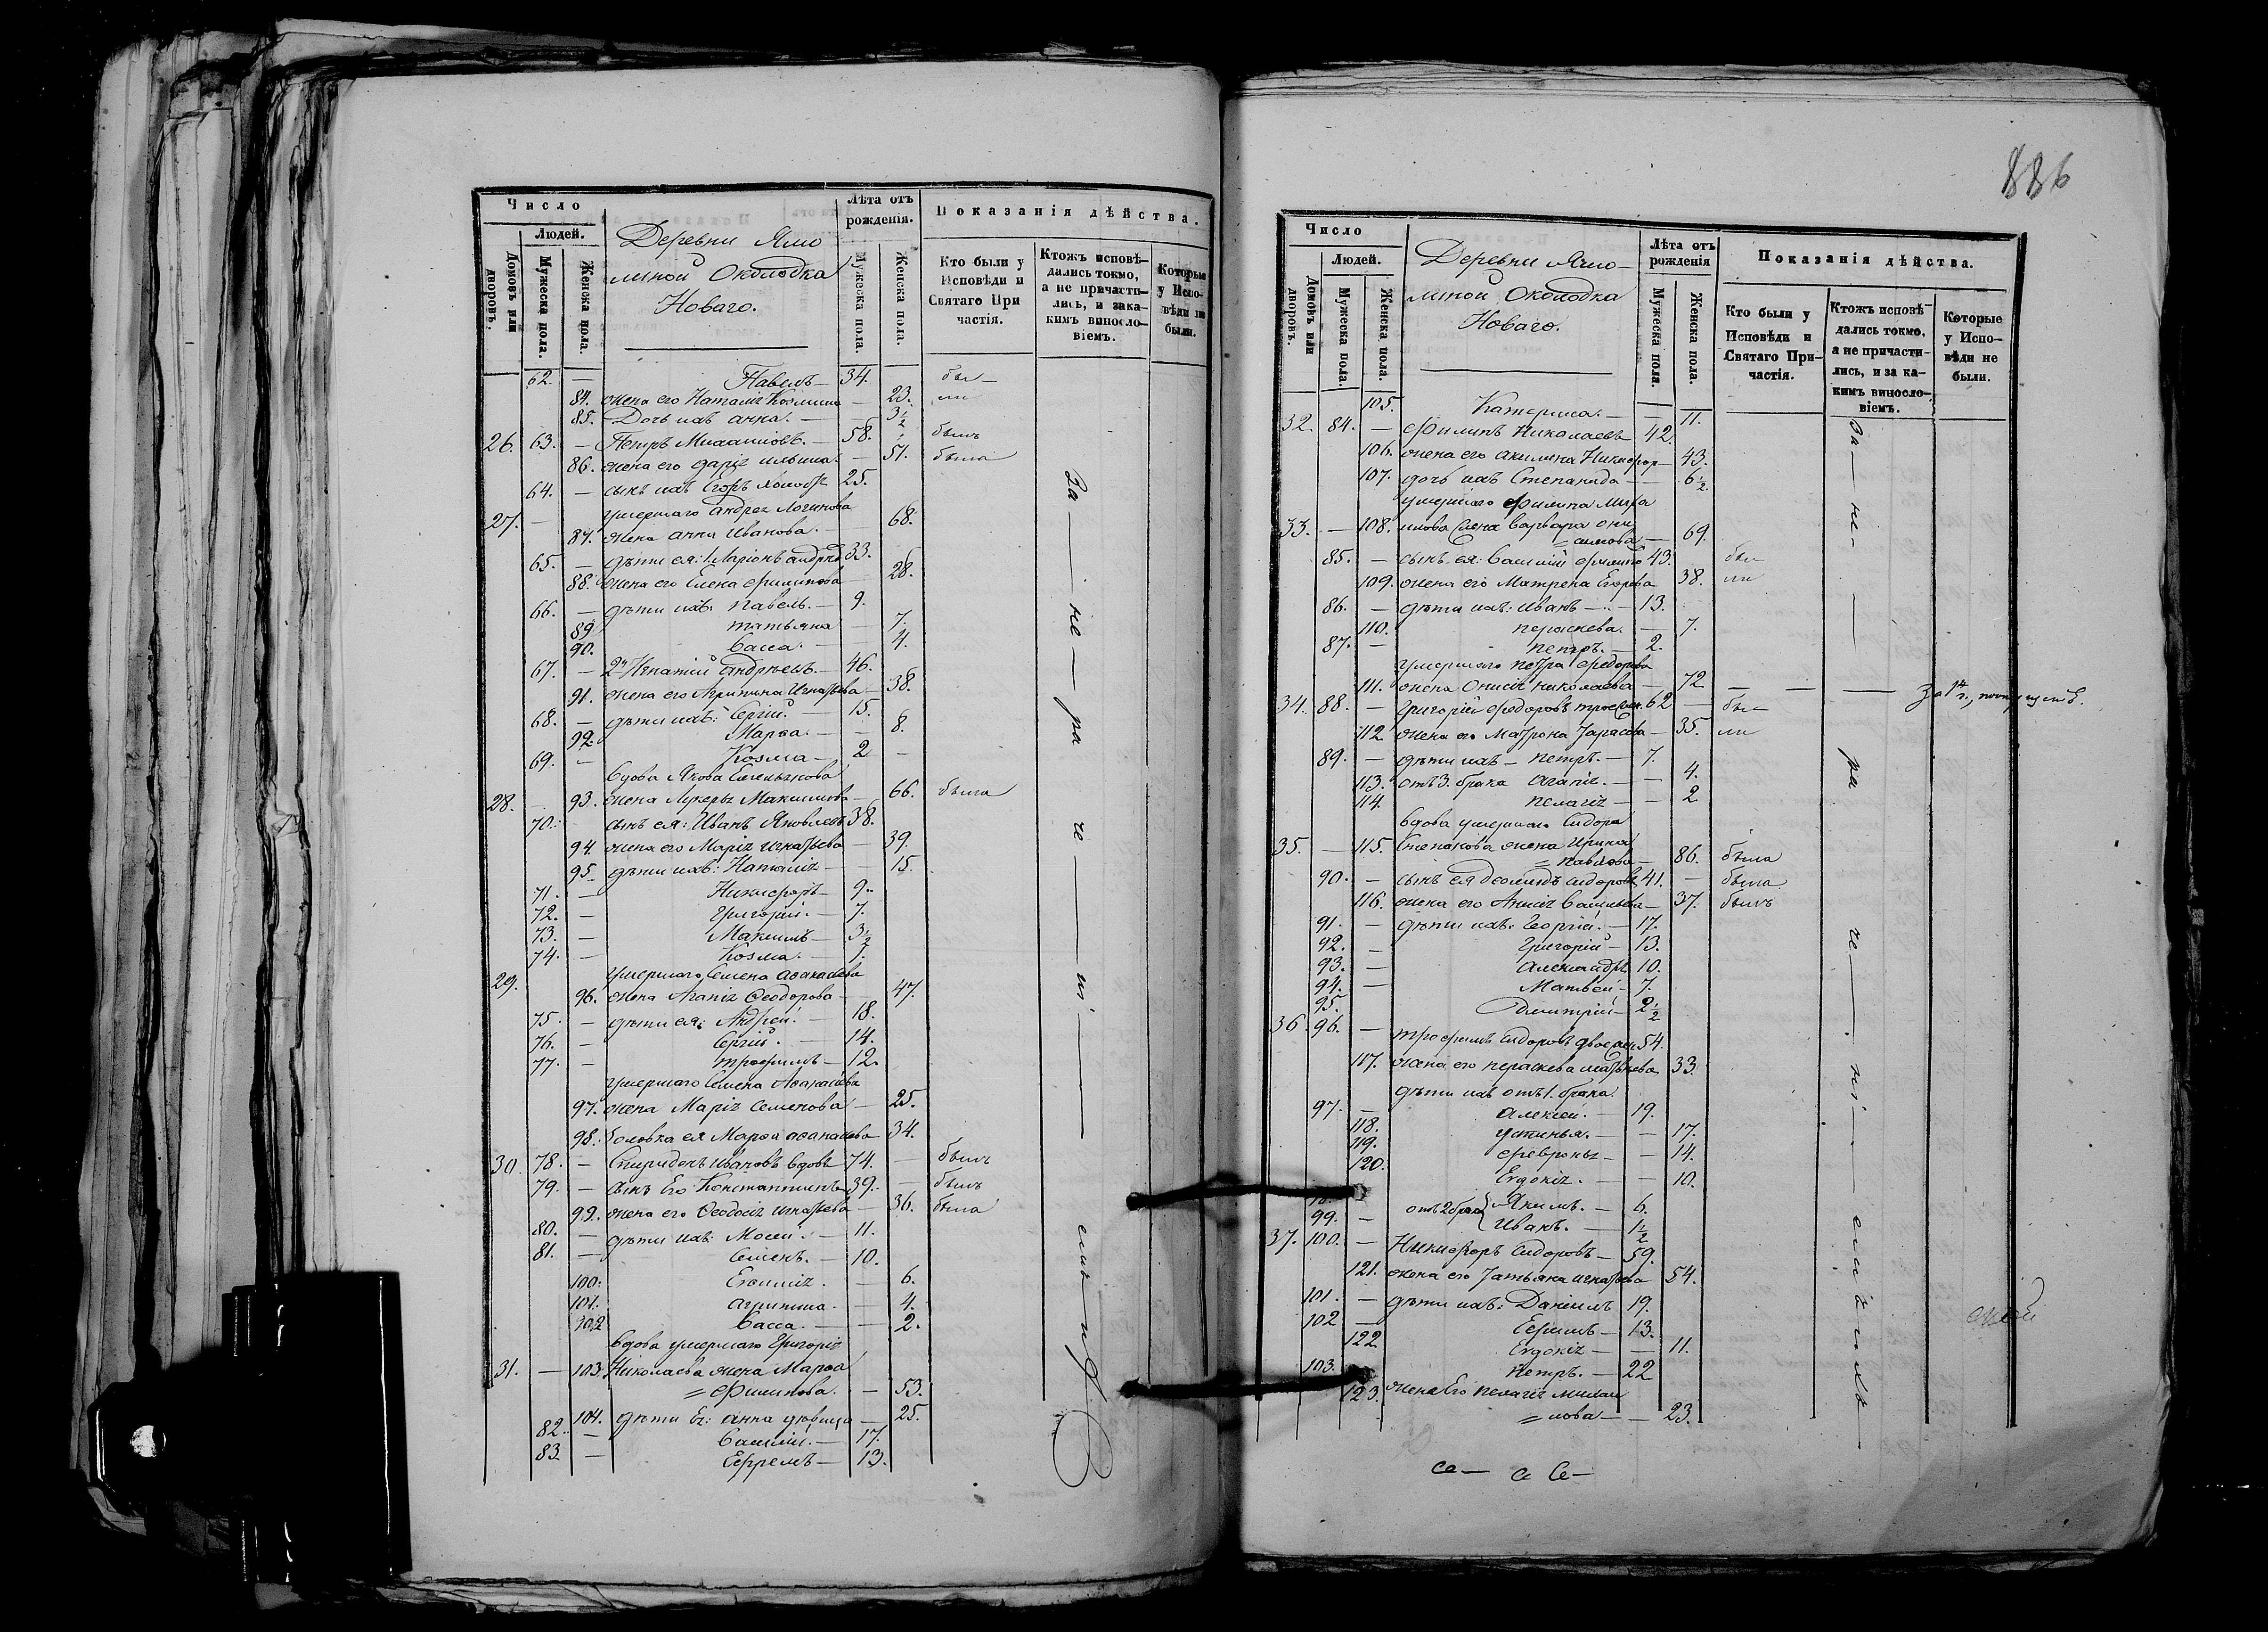 Число
Людей.
Домовъ или дворовъ.
Мужеска пола.
Женска пола.
Деревни Ямо
линой Околодка
Новаго.
Лѣта отъ рожденія.
Мужеска пола.
Женска пола.
Показанія дѣйства.
Кто были у Исповѣди и Святаго При частія.
Ктожъ исповѣ- дались токмо, а не причасти- лись, и зака- кимъ виносло- віемъ.
Которые у Испо- вѣди не были.
62. — Павелъ — 34. бы—
84. жена его Наталія Козмина — 23. ли
85. Дочь ихъ Анна. — 3½
26. 63. — Петръ — 58. былъ
86. жена его Дарія Ильина — 51. была
64. — сынъ ихъ Егоръ холостъ 25.
27. — умершаго Андрея Логинова
87. жена Анна Иванова. — 68.
65. — дѣти ея: 1. Ларіонъ 33.
88. жена его Елена Филипова — 28.
66. — дѣти ихъ: Павелъ. — 9.
89. Татьяна — 7.
90. Васса. — 4.
67. — 2й Игнатій Андреевъ. — 46.
91. жена его Агрипина Игнатьева — 38.
68. — дѣти ихъ: Сергій. — 15.
92. Марѳа. — — 8.
69. — Козма — 2 —
вдова Якова Емельянова
28. 93. жена Лукерья Максимова — 66. была
70. сынъ ея: Иванъ Яковлевъ 38.
94. жена его Марія Игнатьева — 39.
95. дѣти ихъ: Наталія — — 15.
71. — Никифоръ — 9.
72. — Григорій. — 7.
73. — Максимъ — 3½
74. — Козма. — 1.
29. умершаго Семена Аѳанасьева
96. жена Агапія Ѳеодорова — 47.
75. — дѣти ея: Андрей. — 18.
76. — Сергій. — 14.
77. — Трофимъ — 12.
умершаго Семена Аѳанасьева
97. жена Марія Семенова — 25.
98. золовка ея Марѳа Аѳанасьева — 34.
30. 78. — Спиридонъ Ивановъ вдовъ 74. — былъ
79. — сынъ Его Константинъ 39. — былъ
99. жена его Ѳеодосія Игнатьева — 36. была
80. — дѣти ихъ: Мосей. — 11.
81. — Семенъ. — 10.
100. Евѳимія. — 6.
101. Агрипина. — 4.
102 Васса. — — 2.
вдова умершаго Григорія
31. — 103. Николаева жена Марѳа
Филипова. — 53.
104. дѣти Ея: Анна дѣвица — 25.
82. — Василій. — 17.
83. — Ефремъ — 13.
За — не — ра — че — ні — емъ
886
Число
Людей.
Домовъ или дворовъ.
Мужеска пола.
Женска пола.
Деревни Ямо—
линой Околодка
Новаго.
Лѣта отъ рожденія
Мужеска пола.
Женска пола.
Показанія дѣйства.
Кто были у Исповѣди и Святаго При- частія.
Ктожъ исповѣ дались токмо, а не причасти- лись, и за ка- кимъ виносло- віемъ.
Которые у Испо- вѣди не были.
105. Катерина. — — 11.
32. 84. — Филипъ Николаевъ 42.
106. жена его Акилина Никифор— 43.
107. дочь ихъ Степанида — — 6½
умершаго Филипа
33. — 108. жена Варвара Они
симова — 69.
85. — сынъ ея: Василій 43. бы—
109. жена его Матрена Егорова 38. ли
86. — дѣти ихъ: Иванъ — — 13.
110. Пераскева. — 7.
87. — Петръ. — 2.
умершаго Петра Федорова
111. жена Онисія Николаева — 72 — — —
34. 88. — Григорій Федоровъ 62 — бы—
112 жена его Матрона Тарасова — 35. ли
89. — дѣти ихъ — Петръ. — 7.
113. отъ 3. брака Агапія. — — 4.
114. Пелагія — — 2
вдова умершаго Сидора
35. — 115. Степанова жена Ирина
Павлова — 86. была
90. — сынъ ея Деомидъ Сидоровъ 41. — была
116. жена его Анисія Васильева — 37. былъ
91. — дѣти ихъ: Георгій. — 17.
92. — Григорій — 13.
93. — Александръ 10.
94. — Матвей — 7.
95. Димитрій — 2½
36. 96. — Трофимъ Сидоровъ 54.
117. жена его Пераскева Матвѣева 33.
дѣти ихъ отъ 1. брака
97. — Алексей. — 19.
118. Устинья. — — 17.
119. Февронья — — 14.
120. Евдокія. — — 10.
отъ 2 брака Якимъ. — 6.
99. — Иванъ. — 1½
37. 100. — Никифоръ Сидоровъ — 59.
121. жена его Татьяна Игнатьева 54.
101. — дѣти ихъ: Даніилъ 19.
102 — Ефимъ — 13.
122 Евдокія — — 11.
103. Петръ. — 22
123. жена Его Пелагія
нова — — 23.
За — не — ра — че — ні —